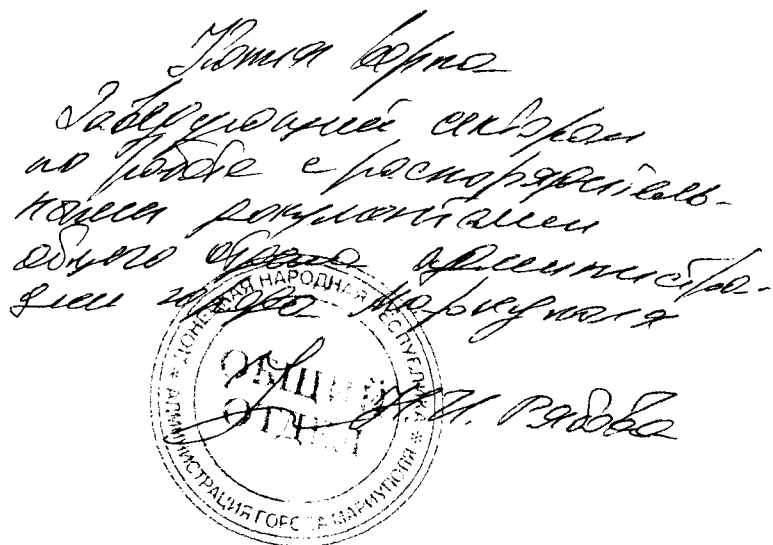 Копия верна
Заведующий сектором
по работе с распорядитель-
ными документами
общего отдела администра-
ции города Мариуполя
Н.И. Рябова
ДОНЕЦКАЯ НАРОДНАЯ РЕСПУБЛИКА
* АДМИНИСТРАЦИЯ ГОРОДА МАРИУПОЛЯ *
ОБЩИЙ
ОТДЕЛ